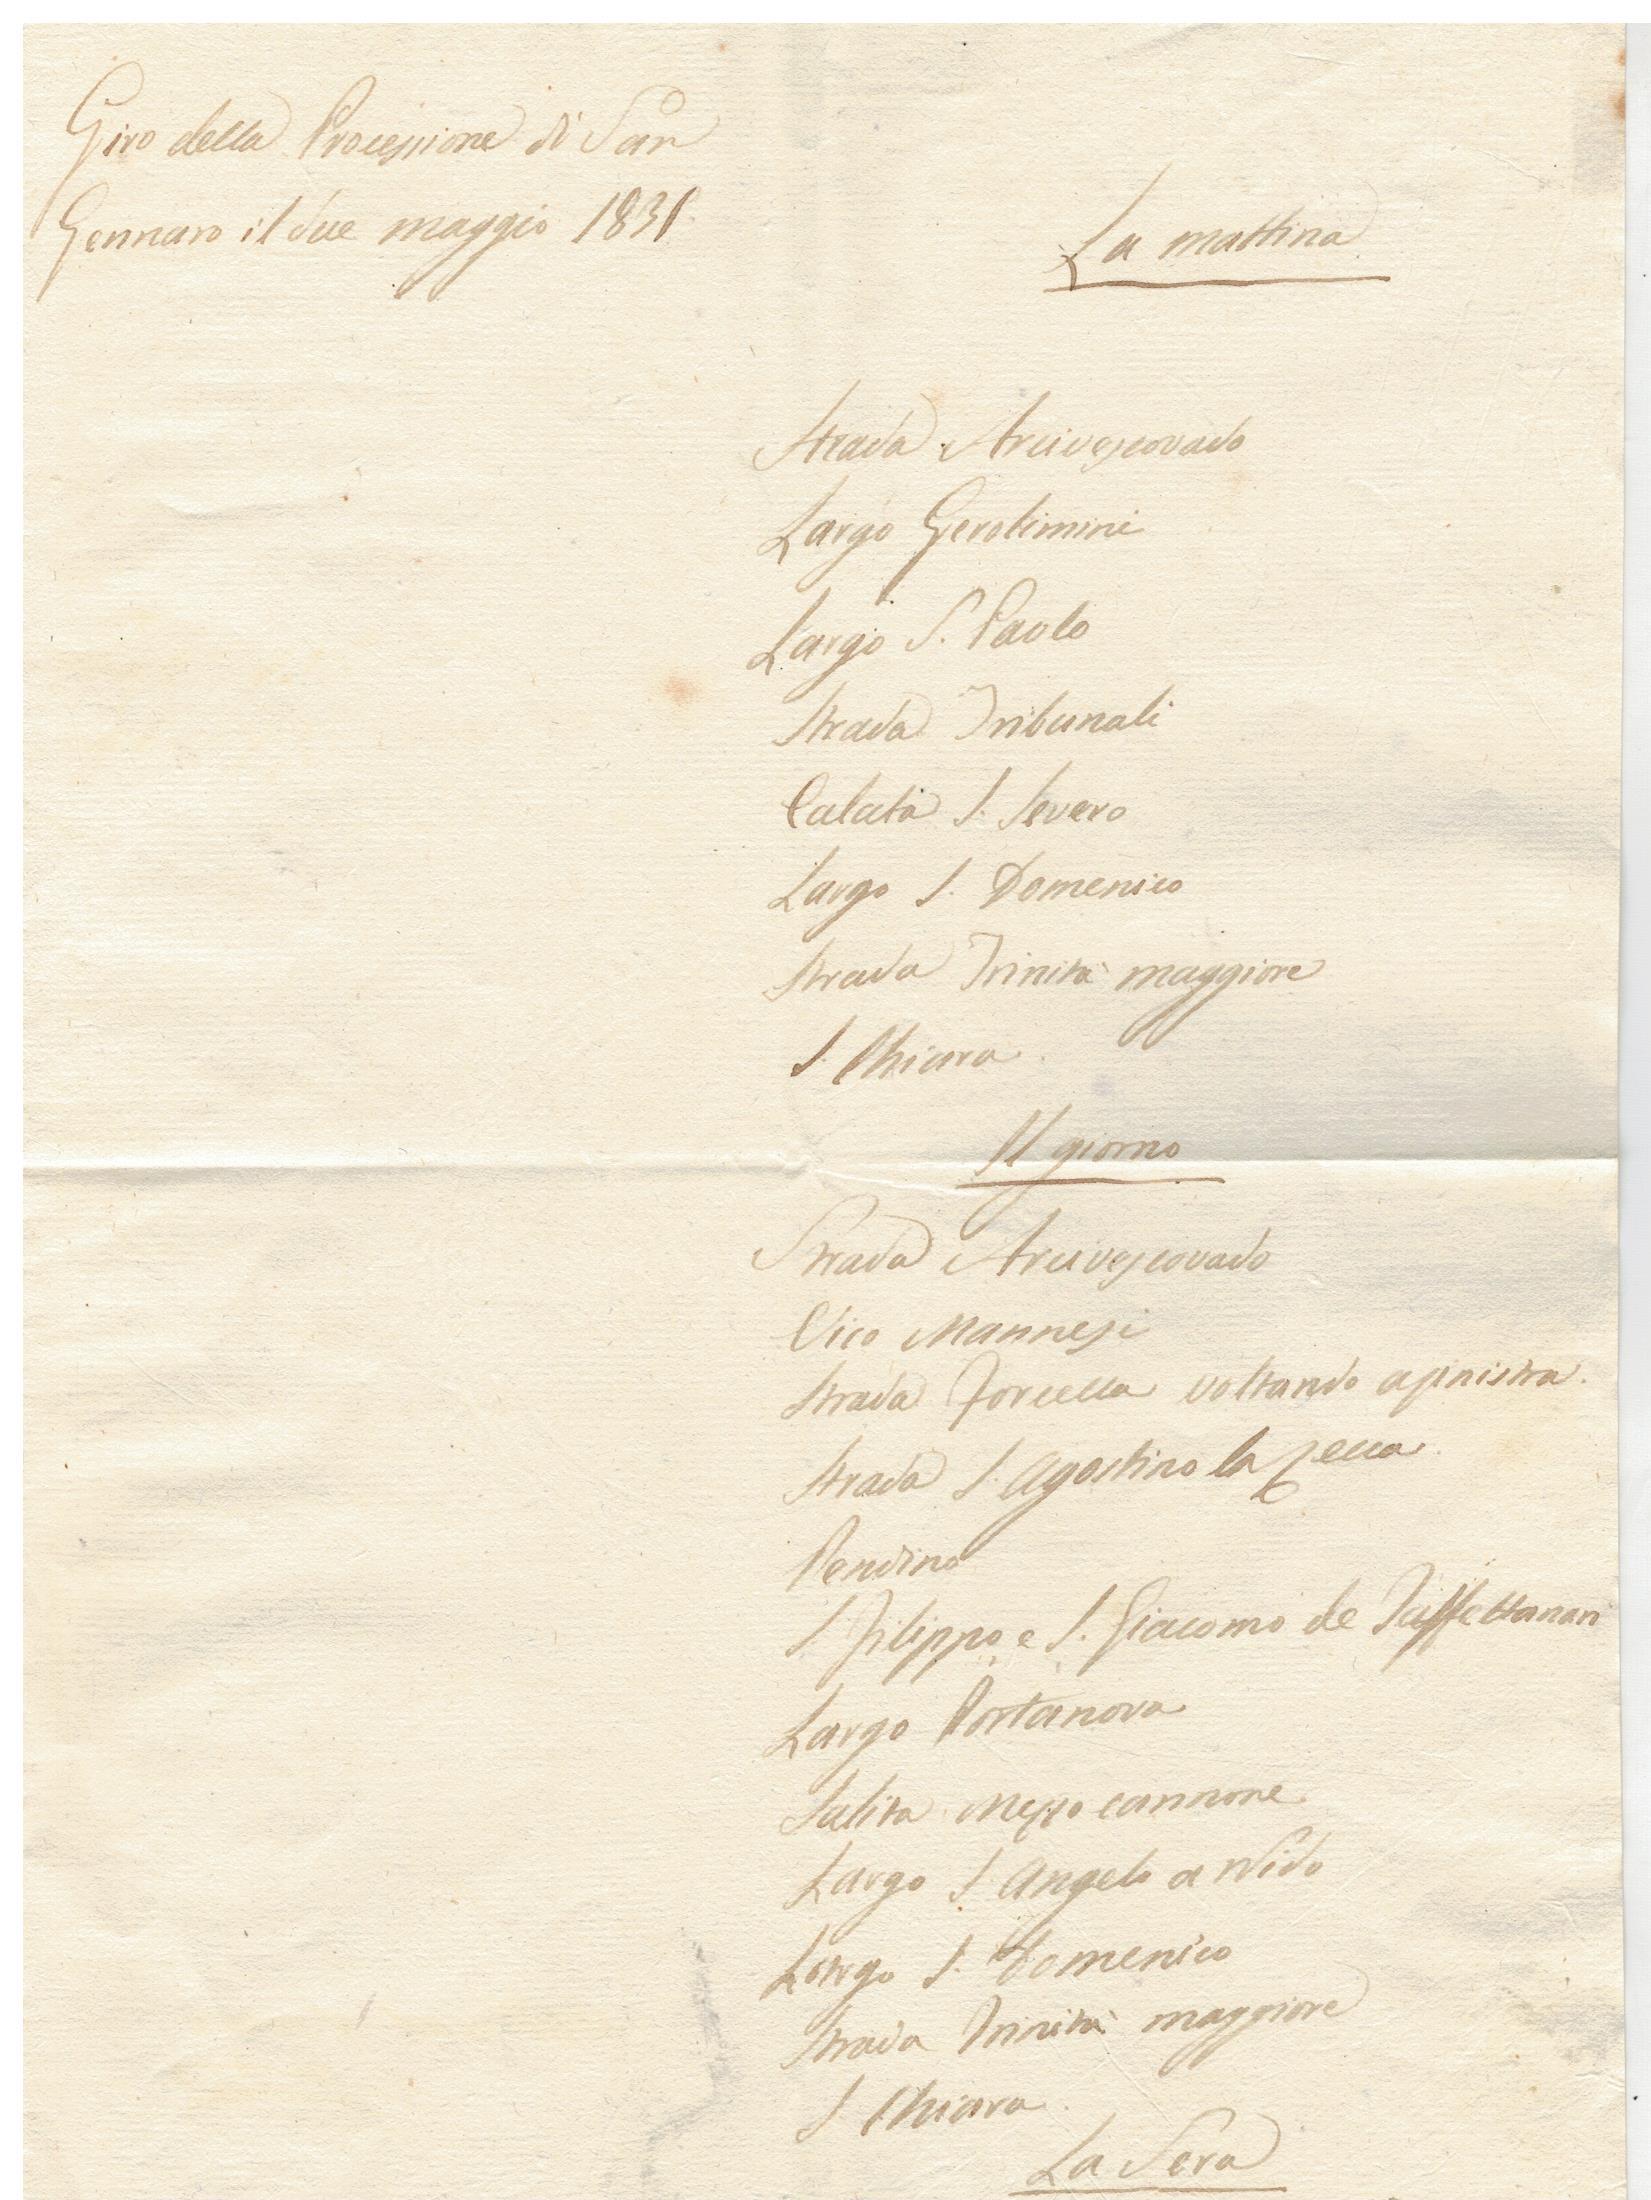 Giro della Processione di San
Gennaro il due maggio 1831
La mattina
Strada Arcivescovado
Largo Gerolimini
Largo S. Paolo
Strada Tribunali
Calata S. Severo
Largo S. Domenico
Strada Trinità maggiore
S. Chiara
Il giorno
Strada Arcivescovado
Vico Mannesi
Strada Forcella voltando a sinistra.
Strada S. Agostino la Zecca
Pendino
S. Filippo e S. Giacomo de Taffettanari
Largo Portanova
Salita Mezzo cannone
Largo S. Angelo a Nido
Largo S. Domenico
Strada Trinità maggiore
S. Chiara.
La Sera